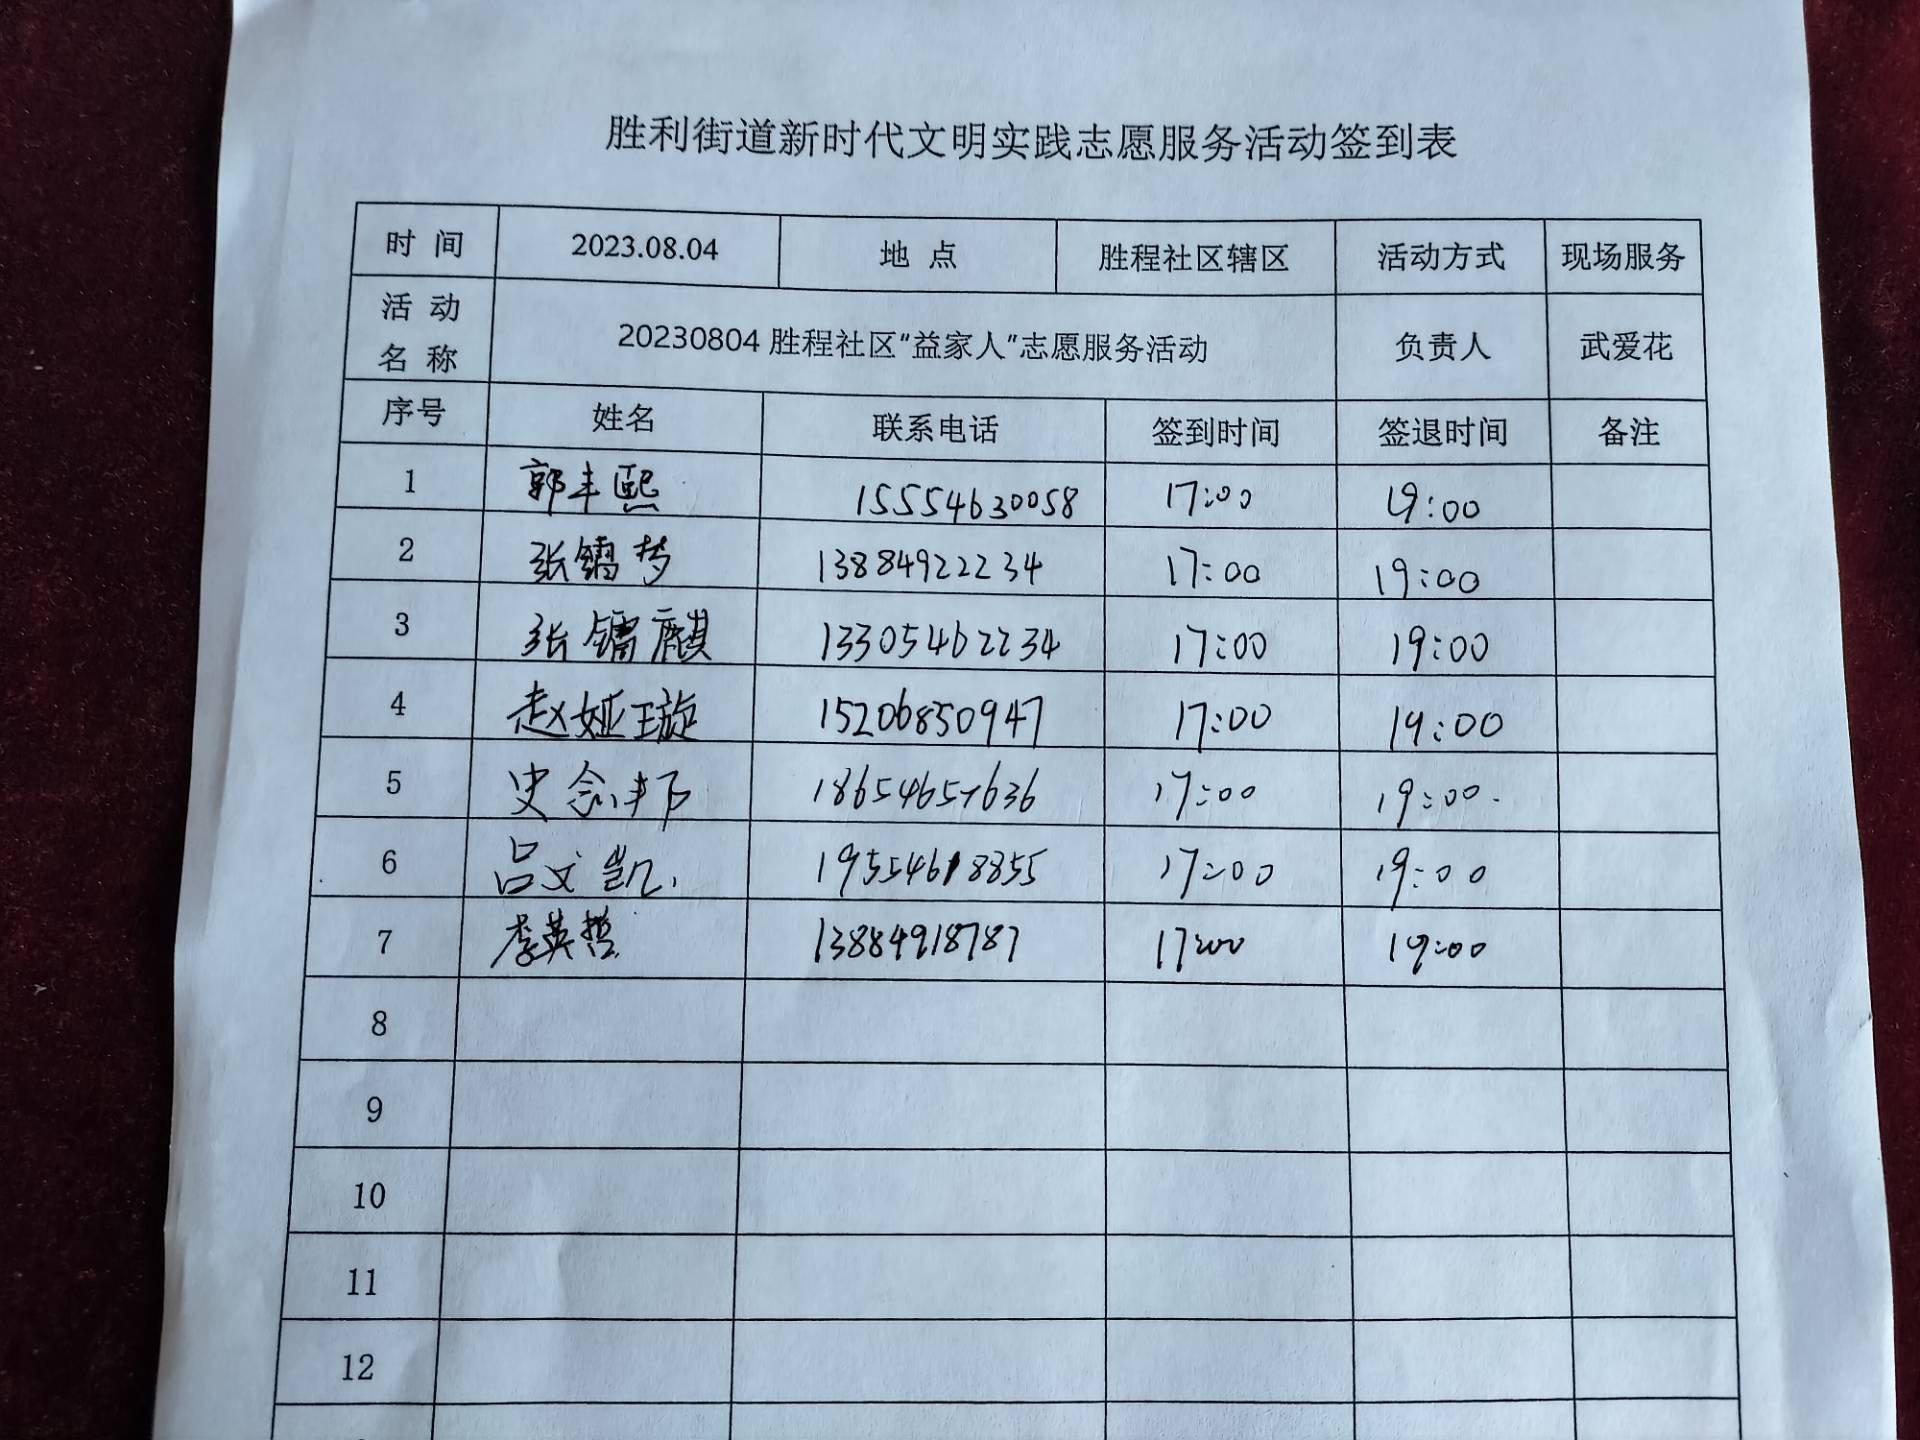 胜利街道新时代文明实践志愿服务活动签到表
时 间 2023.08.04 地 点 胜程社区辖区 活动方式 现场服务
活 动 名 称 20230804胜程社区“益家人”志愿服务活动 负责人 武爱花
序号 姓名 联系电话 签到时间 签退时间 备注
1 郭丰熙 15554630058 17:00 19:00
2 张镭梦 13884922234 17:00 19:00
3 张镭麒 13305462234 17:00 19:00
4 赵娅璇 15206850947 17:00 19:00
5 史念 18654657636 17:00 19:00
6 吕文凯 19554618855 17:00 19:00
7 李英哲 13884918787 17:00 19:00
8
9
10
11
12